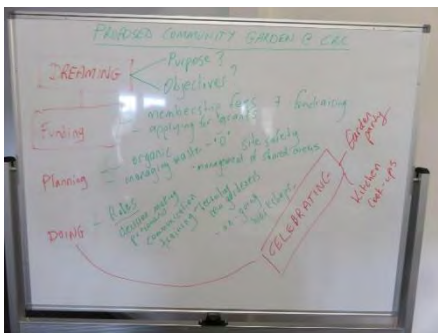 PROPOSED COMMUNITY GARDEN @ CRC
DREAMING
Purpose?
Objectives?
Funding
- membership fees + fundraising
- applying for grants
Planning
- organic
- managing waste - "0" site safety
- management of
DOING
- Roles
decision making
communication
training
on-going
CELEBRATING
Garden party
Kitchen cook-ups